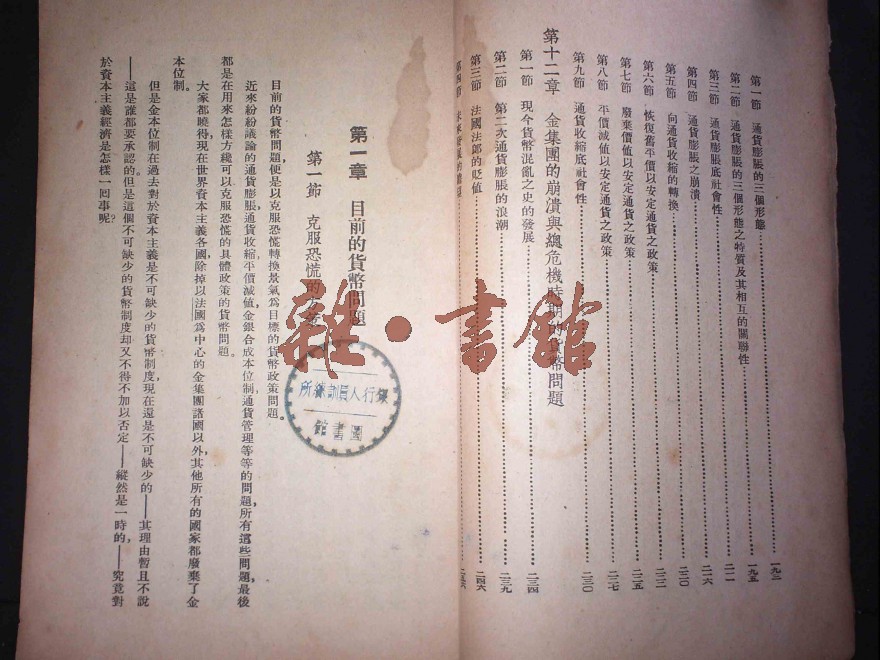 第一節　通貨膨脹的三個形態………一九三
第二節　通貨膨脹的三個形態之特質及其相互的關聯性………一九五
第三節　通貨膨脹底社會性………二一一
第四節　通貨膨脹之崩潰………二一六
第五節　向通貨收縮的轉換………二二〇
第六節　恢復舊平價以安定通貨之政策………二二二
第七節　廢棄價值以安定通貨之政策………二二五
第八節　平價減値以安定通貨之政策………二二七
第九節　通貨收縮底社會性………二三〇
第十二章　金集團的崩潰與總危機時期的貨幣問題
第一節　現今貨幣混亂之史的發展………二三四
第二節　第二次通貨膨脹的浪潮………二三九
第三節　法國法郎的貶値………二四六
第四節
第一章　目前的貨幣問題
第一節　克服恐慌的
目前的貨幣問題，便是以克服恐慌轉換景氣爲目標的貨幣政策問題。
近來紛紛議論的通貨膨脹，通貨收縮，平價減値，金銀合成本位制，通貨管理等等的問題，所有這些問題，最後
都是在用來怎樣方纔可以克服恐慌的具體政策的貨幣問題。
大家都曉得，現在世界資本主義各國，除掉以法國爲中心的金集團諸國以外，其他所有的國家都廢棄了金
本位制。
但是金本位制在過去對於資本主義是不可缺少的貨幣制度，現在還是不可缺少的——其理由暫且不說
——這是誰都要承認的。但是這個不可缺少的貨幣制度却又不得不加以否定——縱然是一時的，——究竟對
於資本主義經濟是怎樣一回事呢？
銀行人員訓練所
圖書館
雜·書館